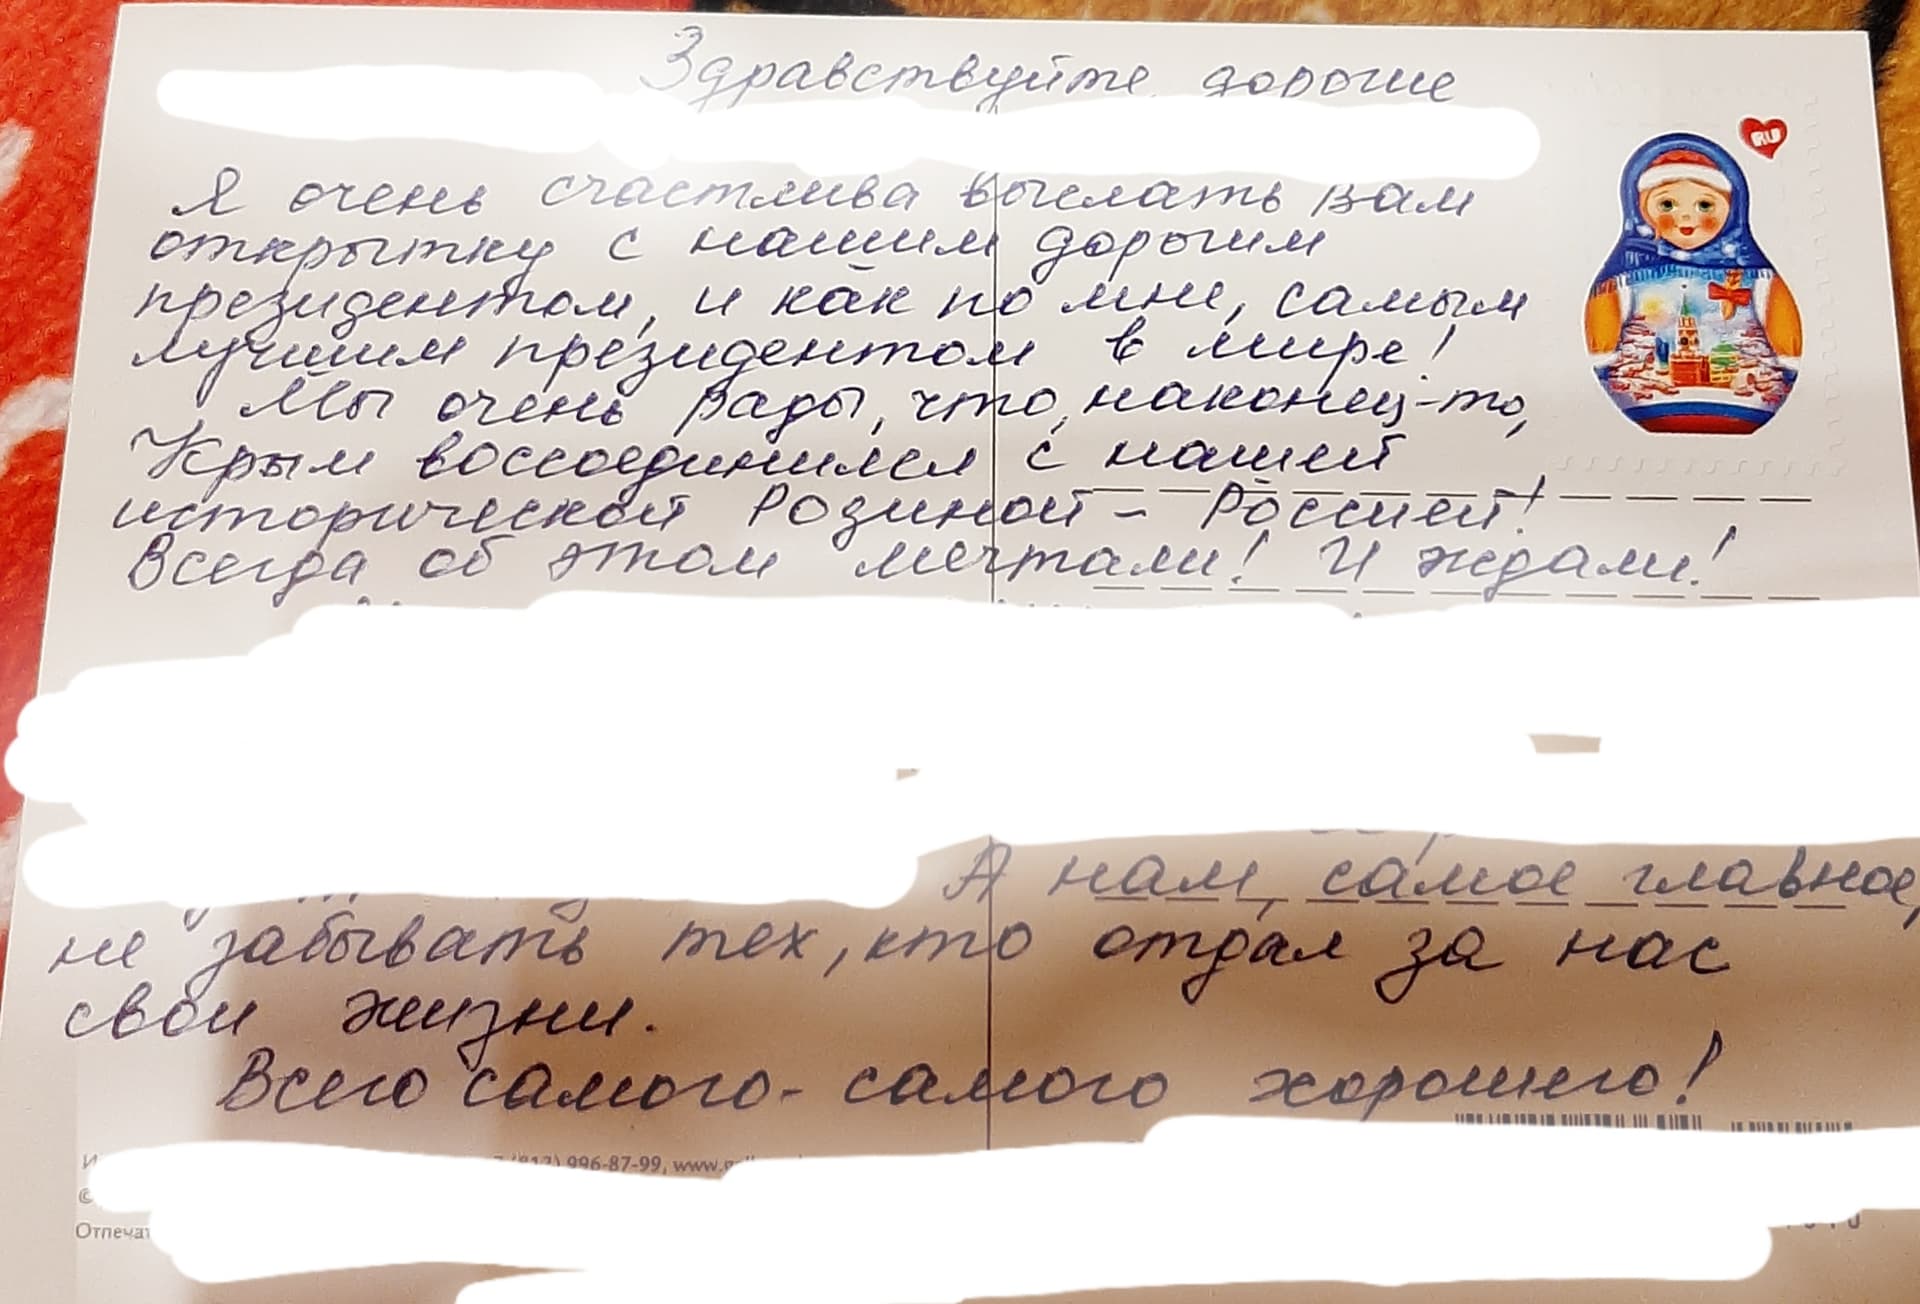 Здравствуйте, дорогие
RU
Я очень счастлива выслать вам
открытку с нашим дорогим
президентом, и как по мне, самым
лучшим президентом в мире!
Мы очень рады, что, наконец-то,
Крым воссоединился с нашей
исторической Родиной - Россией!
Всегда об этом мечтали! И ждали!
А нам, самое главное,
не забывать тех, кто отдал за нас
свои жизни.
Всего самого-самого хорошего!
996-87-99, www.
©